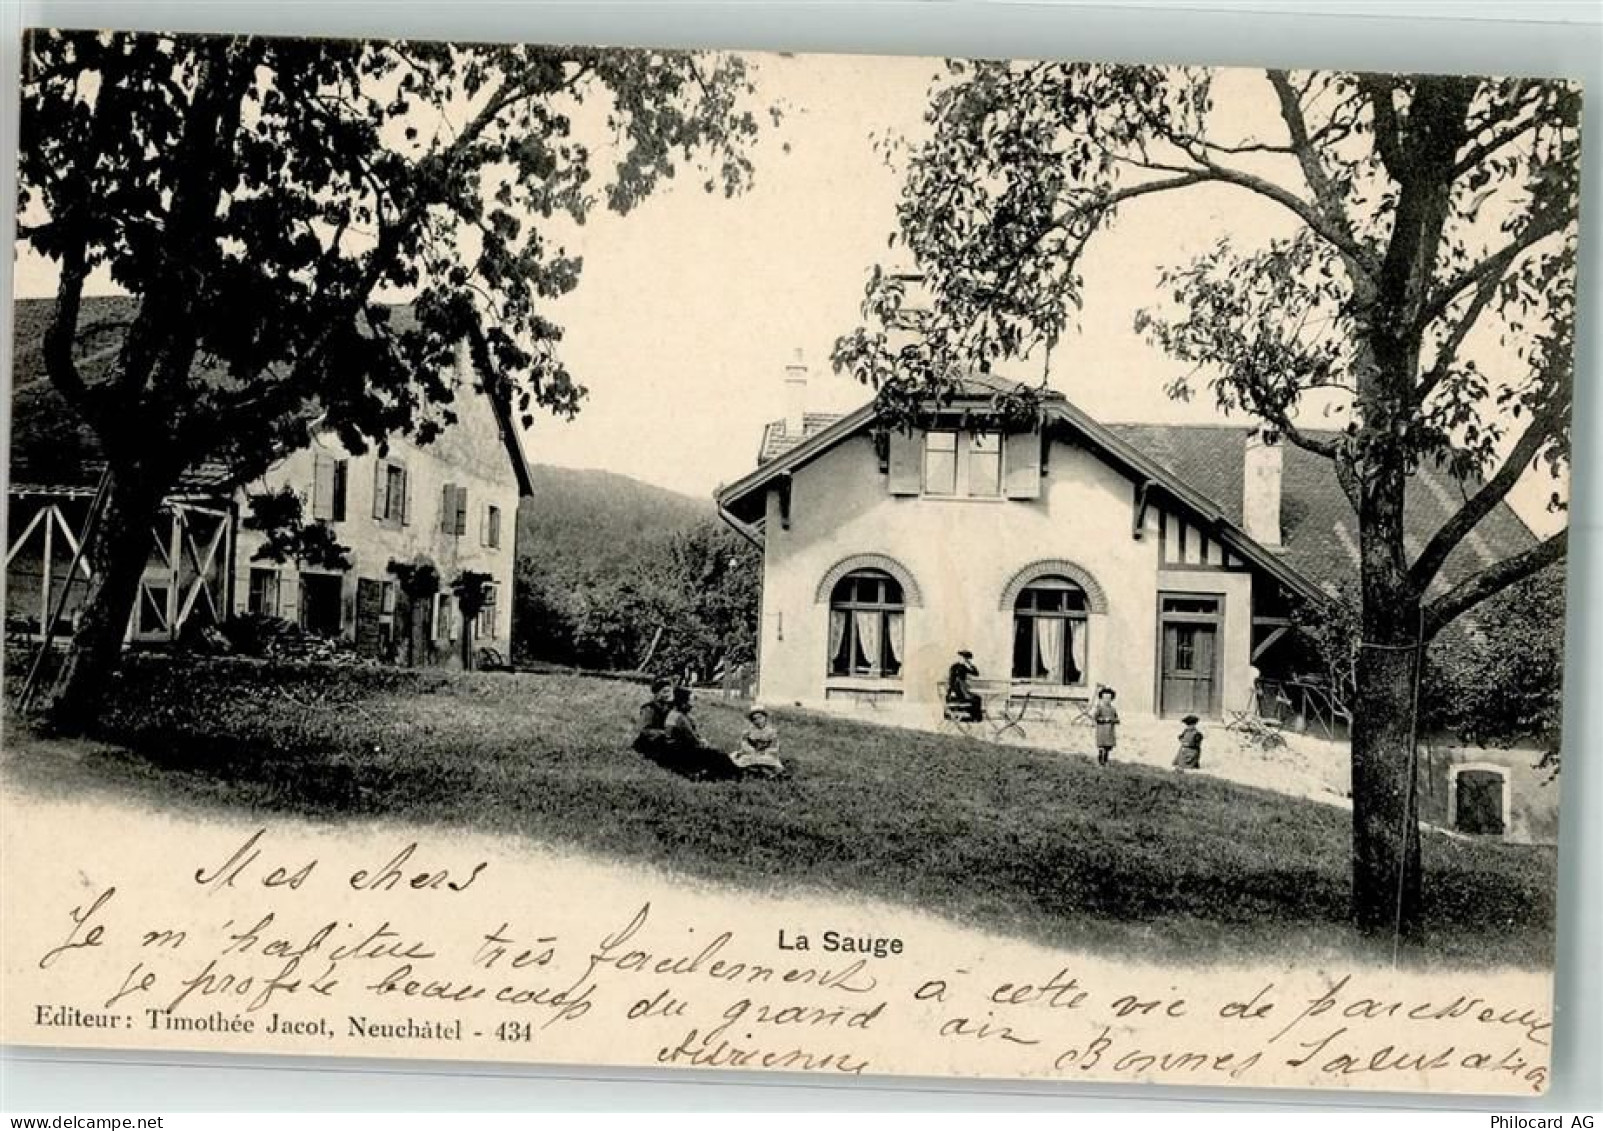 Mes chers
La Sauge
Je m'habitue très facilement à cette vie de paresseux
je profite beaucoup du grand air Bonnes Salutation
Editeur: Timothée Jacot, Neuchâtel - 434
Adrienne
Philocard AG